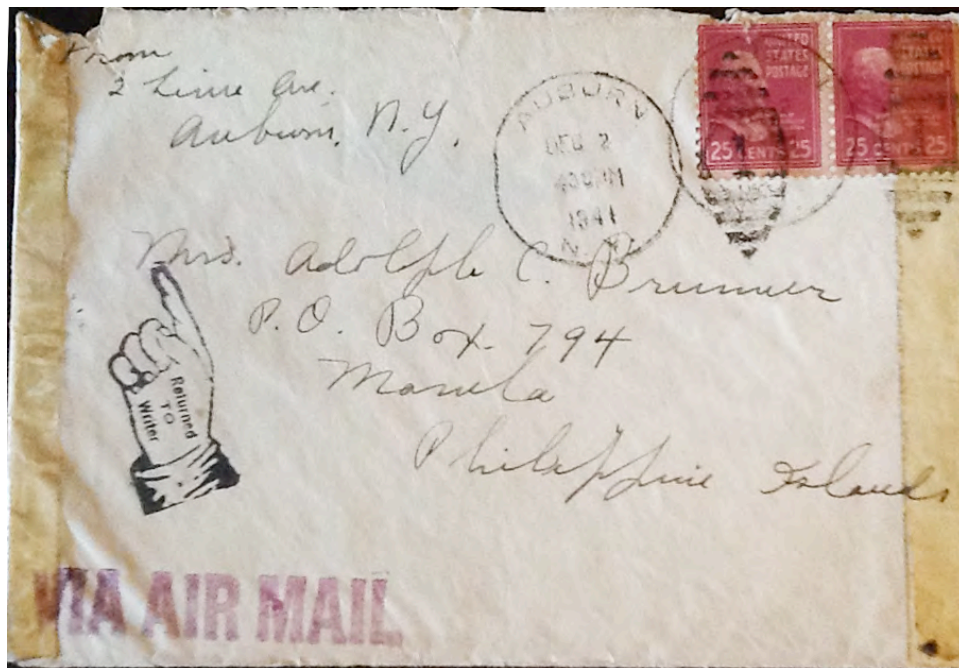 From
2 Lime Ave.
Auburn, N.Y.
AUBURN
DEC 2
430PM
1941
N.Y.
UNITED
STATES
POSTAGE
25 CENTS 25
STATES
POSTAGE
25 CENTS 25
Mrs. Adolph C. Brunner
P.O. Box. 794
Manila
Philippine Islands
Returned
TO
Writer
VIA AIR MAIL